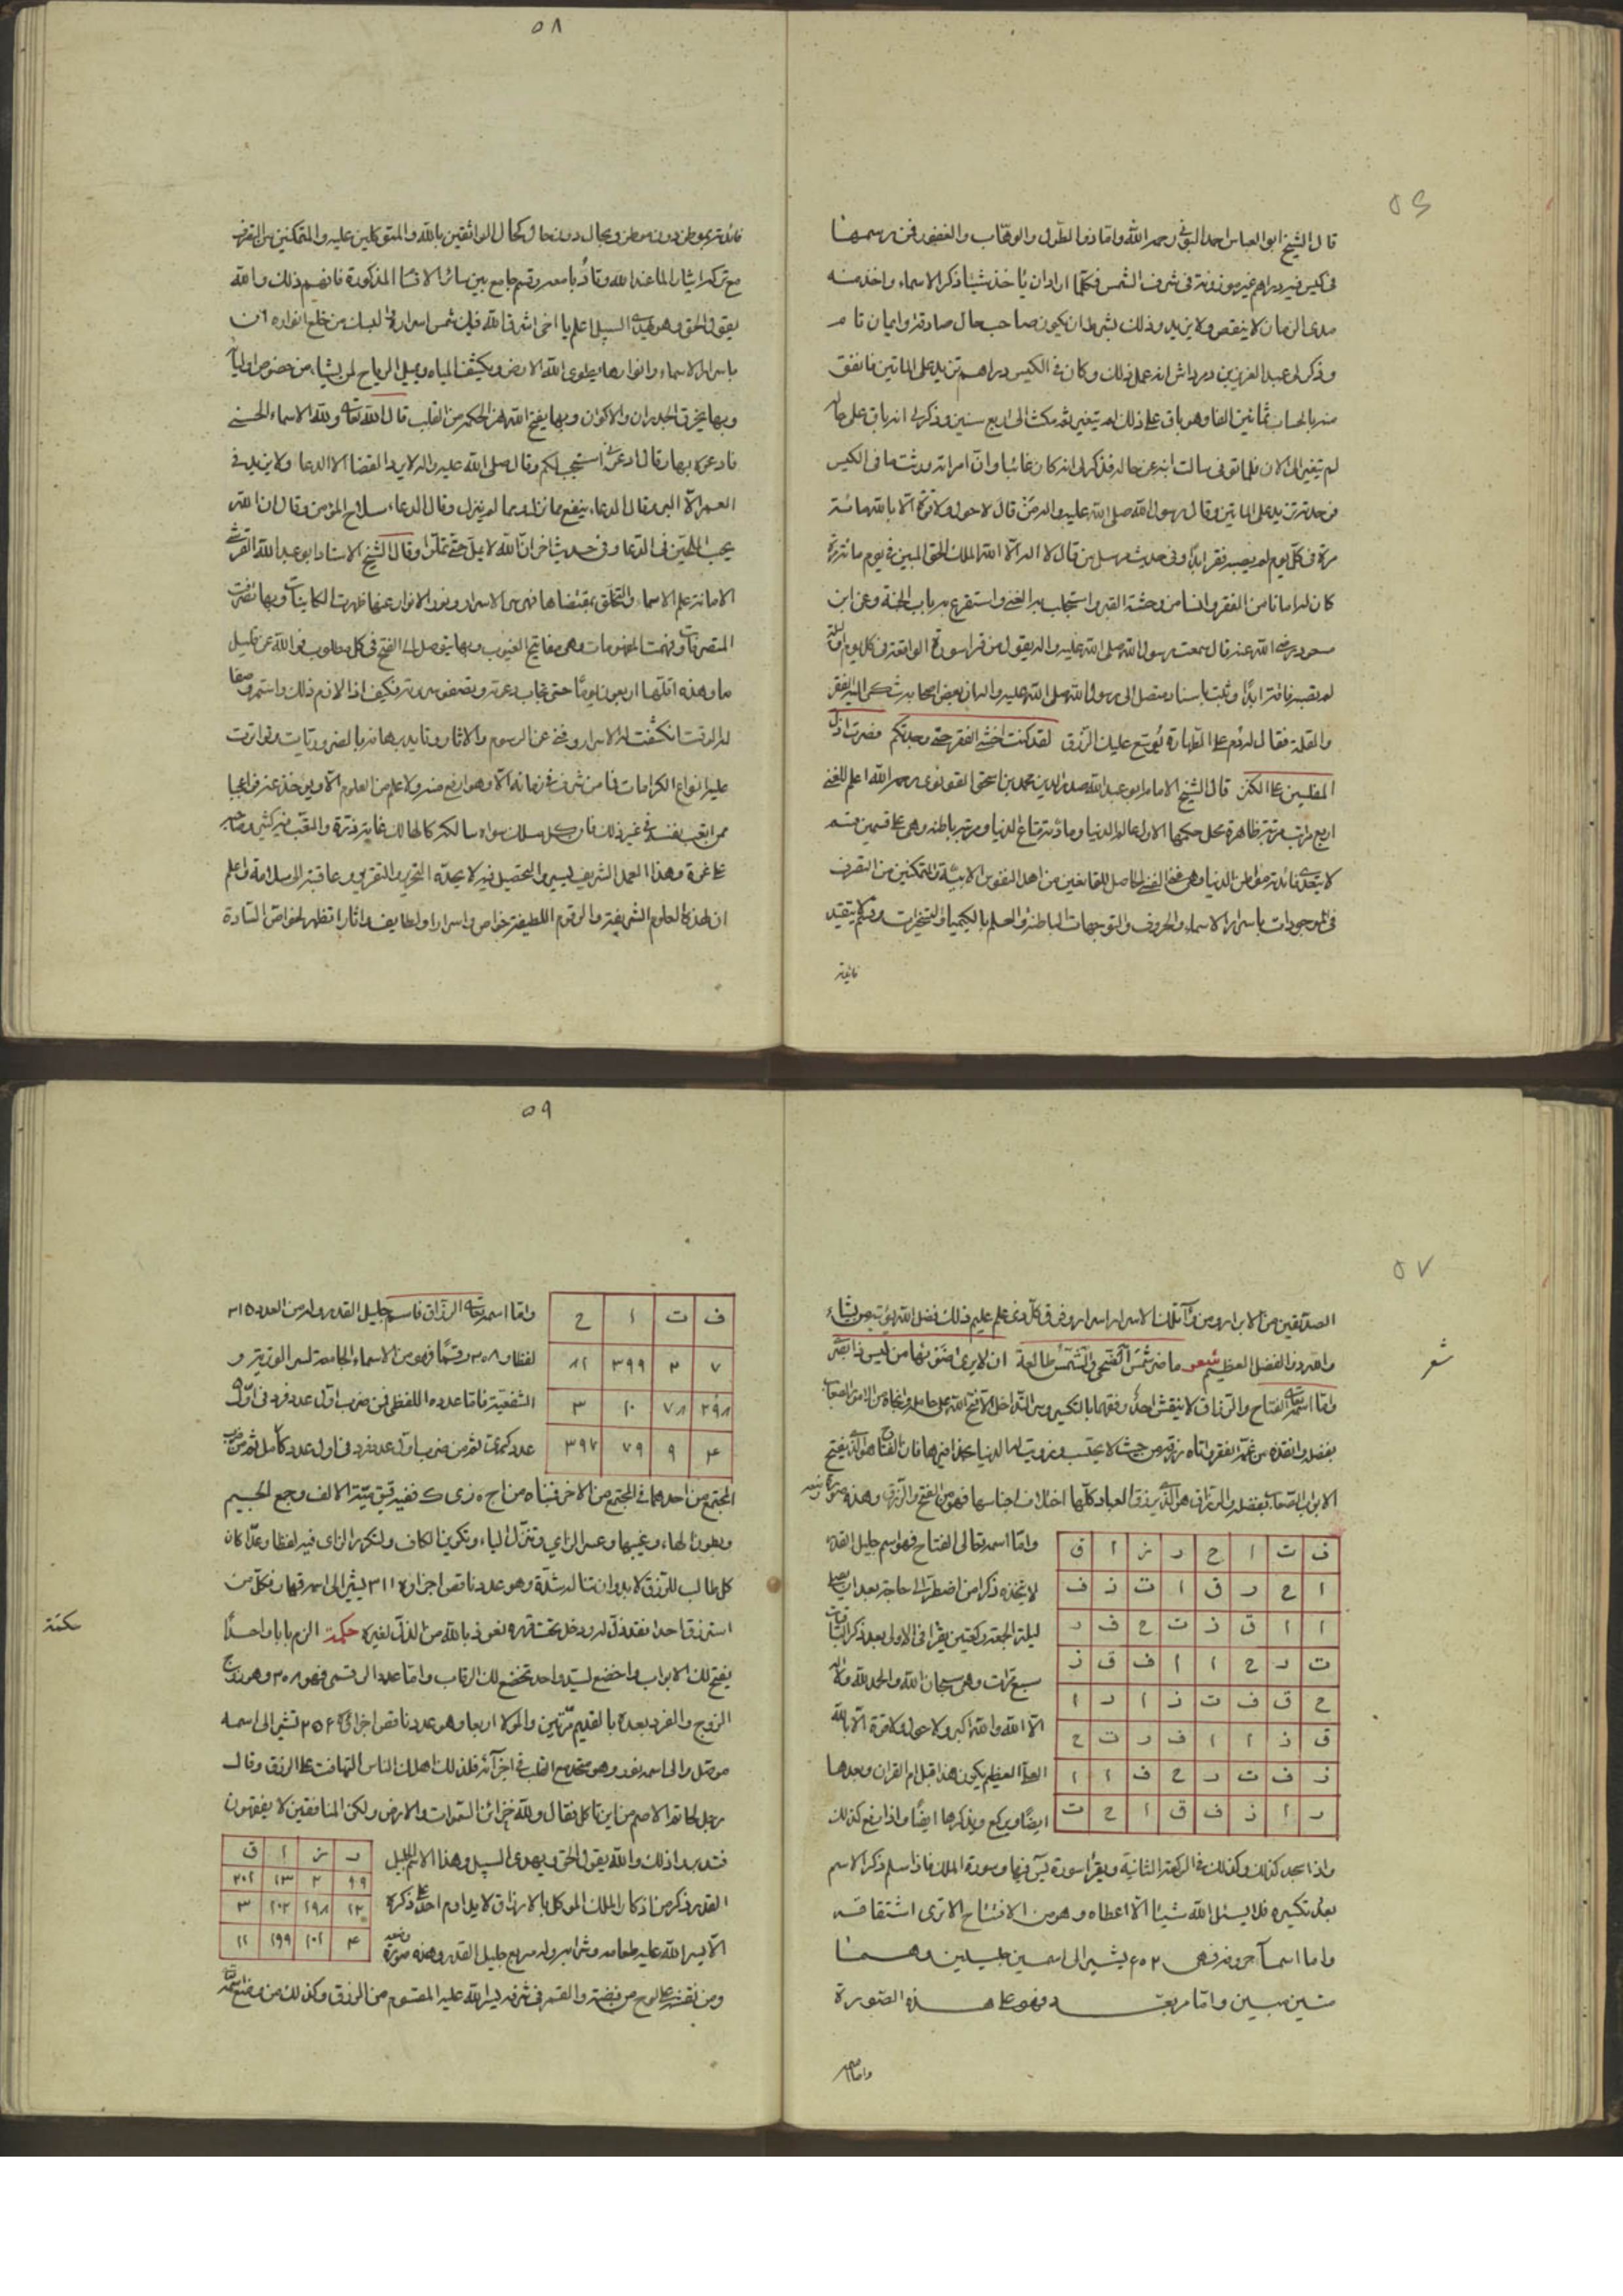 ٥٦
قال الشيخ ابو العباس احمد البونى رحمه الله واما ذو الطول والوهّاب والغفور فمن رسمها
فى كيس فيه دراهم غير موزونة فى شرف الشمس فكلما اراد ان ياخذ شيئا ذكر الاسماء واخذ منه
مدى الزمان لا ينقص ولا يزيد وذلك بشرط ان يكون صاحب حال صادقة وايمان تام
وذكر لى عبد العزيز بن انه عمل ذلك وكان فى الكيس دراهم تزيد على الماتين فانفق
منه بالحساب ثمانين الفا وهو باق على ذلك لم يتغير ثم مكث الى اربع سنين وذكر لى انه باق على حاله
لم يتغير الى الان فلما توفى سالت ابنه عن حاله فذكر لى انه كان غائبا وانّ امراته ورثت ما فى الكيس
فوجدته تزيد على الماتين وقال رسول الله صلى الله عليه واله من قال لا حول ولا قوة الّا بالله مائة
مرة فى كلّ يوم لم يصبه فقر ابدًا وفى حديث مرسل من قال لا اله الّا الله الملك الحق المبين فى يوم مائة مرّة
كان له امانا من الفقر وانسا من وحشة القبر واستجلب به الغنى واستقرع به باب الجنة وعن ابن
مسعود رضى الله عنه قال سمعت رسول الله صلى الله عليه واله يقول من قرا سورة الواقعة فى كل يوم وليلة
لم يصبه فاقة ابدًا وثبت باسناد متصل الى رسول الله صلى الله عليه واله ان بعض اصحابه شكى اليه الفقر
والقلة فقال له دُم على الطهارة يُوسّع عليك الرّزق لقد كنت اخشى الفقر حتى وجدتكم فصرت اذل
المفلسين على الكنز قال الشيخ الامام ابو عبد الله صدر الدين محمد بن اسحق القونوى رحمه الله اعلم للغنى
اربع مراتب مرتبة ظاهرة محل حكمها الاول عالم الدنيا ومادّته متاع الدنيا ومرتبة باطنة وهى على قسمين قسم
لا يتعدى فائدته مواطن الدنيا وهى الغنى الحاصل للقانعين من اهل النفوس الابيّة والمتمكنين من التصرف
فى الموجودات باسرار الاسماء والحروف والتوجهات الباطنة والعلم بالكيمياء والتسخيرات وقسم لا يتقيد
فائدته
٥٨
فائدته بموطن دون موطن وبحال دون حال كحال الواثقين بالله والمتوكلين عليه والمتمكنين من التصرف
مع تركه ايثارا لما عند الله وتادّبا معه وقسم جامع بين سائر الاقسام المذكورة فافهم ذلك والله
يقول الحق وهو يهدى السبيل اعلم يا اخى اشرق الله قلبك شمس اسراره والبسك من خلع انواره ان
باسرار الاسماء وانوارها يطوى الله الارض ويكشف المياه ويميل الرياح لمن يشاء من خصوص اوليائه
وبها يخرق الجدران والاكوان وبها يفتح الله عن الحكمة من القلب قال الله تعالى ولله الاسماء الحسنى
فادعوه بها وقال ادعونى استجب لكم وقال صلى الله عليه واله لا يرد القضا الا الدعا ولا يزيد فى
العمر الّا البر وقال الدعاء ينفع مما نزل ومما لم ينزل وقال الدعاء سلاح المؤمن وقال ان الله
يحب الملحّين فى الدّعا وفى حديث اخر انّ الله لا يملّ حتى تملّوا وقال الشيخ الاستاد ابو عبد الله القرشى
الامانة علم الاسماء والتخلّق بمقتضاها فهى سر الاسرار ونور الانوار عنها ظهرت الكاينات وبها تصرفت
المتصرفات وفهمت المفهومات وهى مفاتيح الغيوب وبها يتوصل الى الفتح فى كل مطلوب فوالله عن قليل
ما وهذه اتلها اربعين يومًا حتى تجاب دعوته ويصفو سره فكيف اذا لازم ذلك واستمر وصفا
له الوقت انكشفت له الاسرار وفنى عن الرسوم والاثار وتايد برهانه بالضروريات وتواترت
عليه انواع الكرامات فما من شرف فى زمانه الّا وهو ارفع منه ولا علم من العلوم الّا ويوخذ عنه فواعجبا
ممن اتعب نفسه فى غير ذلك فان كل مسلك سواه سالكه كالهالك غايته ذرّة والتعب فيه كثير وصاحبه
على غرة وهذا العمل الشريف ليسير والتحصيل فيه لا يحدّه التحرير والتقرير وعاقبته الى سلامة واعلم
ان لهذه العلوم الشريفة والرقوم اللطيفة خواص واسرارا ولطايف واثارا تظهر لخواص السّادة
٥٧
الصدّيقين من الابرار ومن وراء تلك الاسرار اسرار وفوق كلّ ذى علم عليم ذلك فضل الله يؤتيه من يشاء
والله ذو الفضل العظيم شعر ما ضرّ شمس الضحى والشمس طالعة ان لا يرى ضوءها من ليس ذا بصر
شعر
وامّا اسمه تعالى الفتاح والرزاق لا ينقش احد وفقهما بالتكسير وسرّ التداخل الّا فتح الله على حامله وانجاه من الامور الصعاب
بفضله وانقذه من غمّة الفقر واتاه رزقه من حيث لا يحتسب وزويت له الدنيا بحذافيرها فان الفتاح هو الّذى يفتح
الابواب الصعاب بفضله والرزاق هو الّذى يرزق العباد كلّها اختلاف اجناسها فهو من الفتح والرزق وهذه صورة وضعه
ف ت ا ح ر ز ا ق
ا ح ر ق ا ت ز ف
ا ا ق ز ت ح ف ر
ت ر ح ا ا ف ق ز
ح ق ف ت ز ا ر ا
ق ز ا ا ف ر ت ح
ز ف ت ر ح ق ا ا
ر ا ز ف ق ا ح ت
وامّا اسمه تعالى الفتاح فهو اسم جليل القدر
لا يتخذه ذكرا من اضطرّ الى حاجة بعد ان يصلى
ليلة الجمعة ركعتين يقرأ فى الاولى بعد ذكر الباقيات
سبع مرّات وهى سبحان الله والحمد لله ولا اله
الّا الله والله اكبر ولا حول ولا قوة الّا بالله
العلىّ العظيم يكون هذا قبل ام القران وبعدها
ايضًا ويركع ويذكرها ايضًا واذا رفع كذلك
واذا سجد كذلك وكذلك فى الركعة الثانية ويقرأ سورة يس فيها وسورة الملك فاذا سلم ذكر الاسم
بعد تكسيره فلا يسئل الله شيئا الّا اعطاه وهو من الافتتاح الا ترى اشتقاقه
واما اسماء حروفه فهى ٢٠٥٢ يشير الى اسمين جليلين وهما
متين مبين واما مربعه فهو على هذه الصورة
واما اسمه
٥٩
ف ت ا ح
٧ ٢ ٣٩٩ ٨١
٣٩٨ ٧٨ ١٠ ٣
٤ ٩ ٧٩ ٣٩٧
وامّا اسمه تعالى الرزّاق فاسم جليل القدر وله من العدد ٣١٥
لفظا و ٣٠٨ رقمًا فهو من الاسماء الجامعة لسر الوترية و
الشفعية فامّا عدده اللفظى فمن ضرب اوّل عدد فرد فى اوّل
عدد كميت ثم من ضرب اوّل عدد فرد فى اول عدد كامل ثم من ضرب
المجتمع من احدهما فى المجتمع من الاخر فبناه من اج ه ز ى ك ففيه قيوميّة الالف وجمع الجيم
وبطون الهاء وغيبها وعسر الزاى وتنزّل الياء وتكوين الكاف ولتكرير الزاى فيه لفظا وعدّا كان
كل طالب للرّزق لا بد وان تناله شدّة وهو عدد ناقص اجزاؤه ٣١١ يشير الى اسمه قهار فكلّ من
استرزق احدا فقد ذلّ له ودخل تحت قهره نعوذ بالله من الذلّ لغيره حكمة الزم بابا واحدًا
حكمة
يفتح لك الابواب واخضع لسيد واحد تخضع لك الرقاب وامّا عدده الرقمى فهو ٣٠٨ وهو زوج
الزوج والفرد بعده بالقديم مرّتين واوّلا اربعا وهو عدد ناقص اجزاؤه ٢٥٦ تشير الى اسمه
موصّل والى اسمه نور وهو متحد مع القلب فى اجزائه فلذلك اهلك الناس التهافت على الرزق وقال
رجل لحاتم الاصم من اين تاكل فقال ولله خزائن السّموات والارض ولكن المنافقين لا يفقهون
ر ز ا ق
٩٩ ٢ ١٣ ٢٠٢
١٢ ١٩٨ ٢٠٢ ٣
٤ ٢٠١ ١٩٩ ١١
فتدبر اذلك والله يقول الحق ويهدى السبيل وهذا الاسم الجليل
القدر ذكر من اذكار الملك الموكل بالارزاق لا يداوم احد على ذكره
الّا يسر الله عليه طعامه وشرابه وله مربع جليل القدر وهذه صورة وضعه
ومن نقشه على لوح من فضة والقمر فى شرفه يسر الله عليه المقسوم من الرزق وكذلك من وضع اسمه